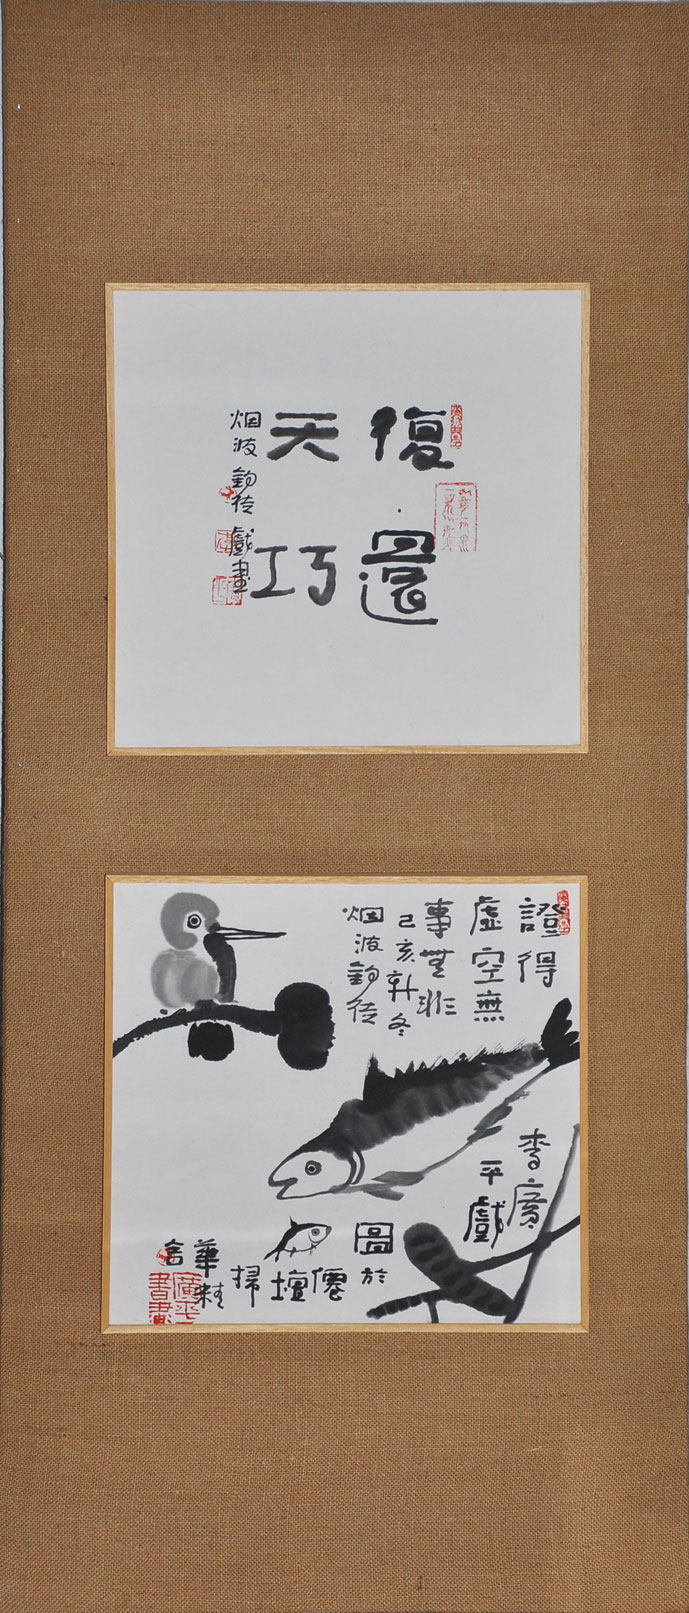 復還
天巧
烟波釣徒戲畫
證得
虛空無
事無非
己亥新冬
烟波釣徒
李廣
平戲
圖於
僊壇掃
華精
舍
廣平
書畫